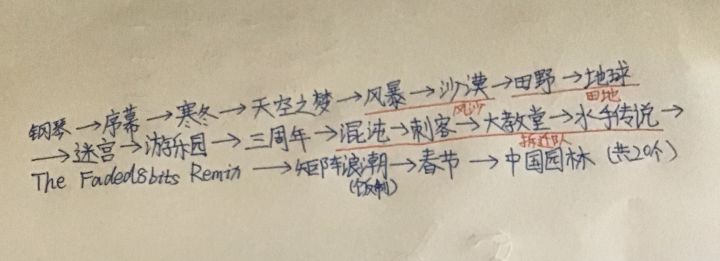 钢琴→序幕→寒冬→天空之梦→风暴→沙漠→田野→地球
风沙 田地
→迷宫→游乐园→三周年→混沌→刺客→大教堂→水手传说→
拆迁队
The Faded8bits Remix→矩阵浪潮→春节→中国园林(共20个)
(饭制)